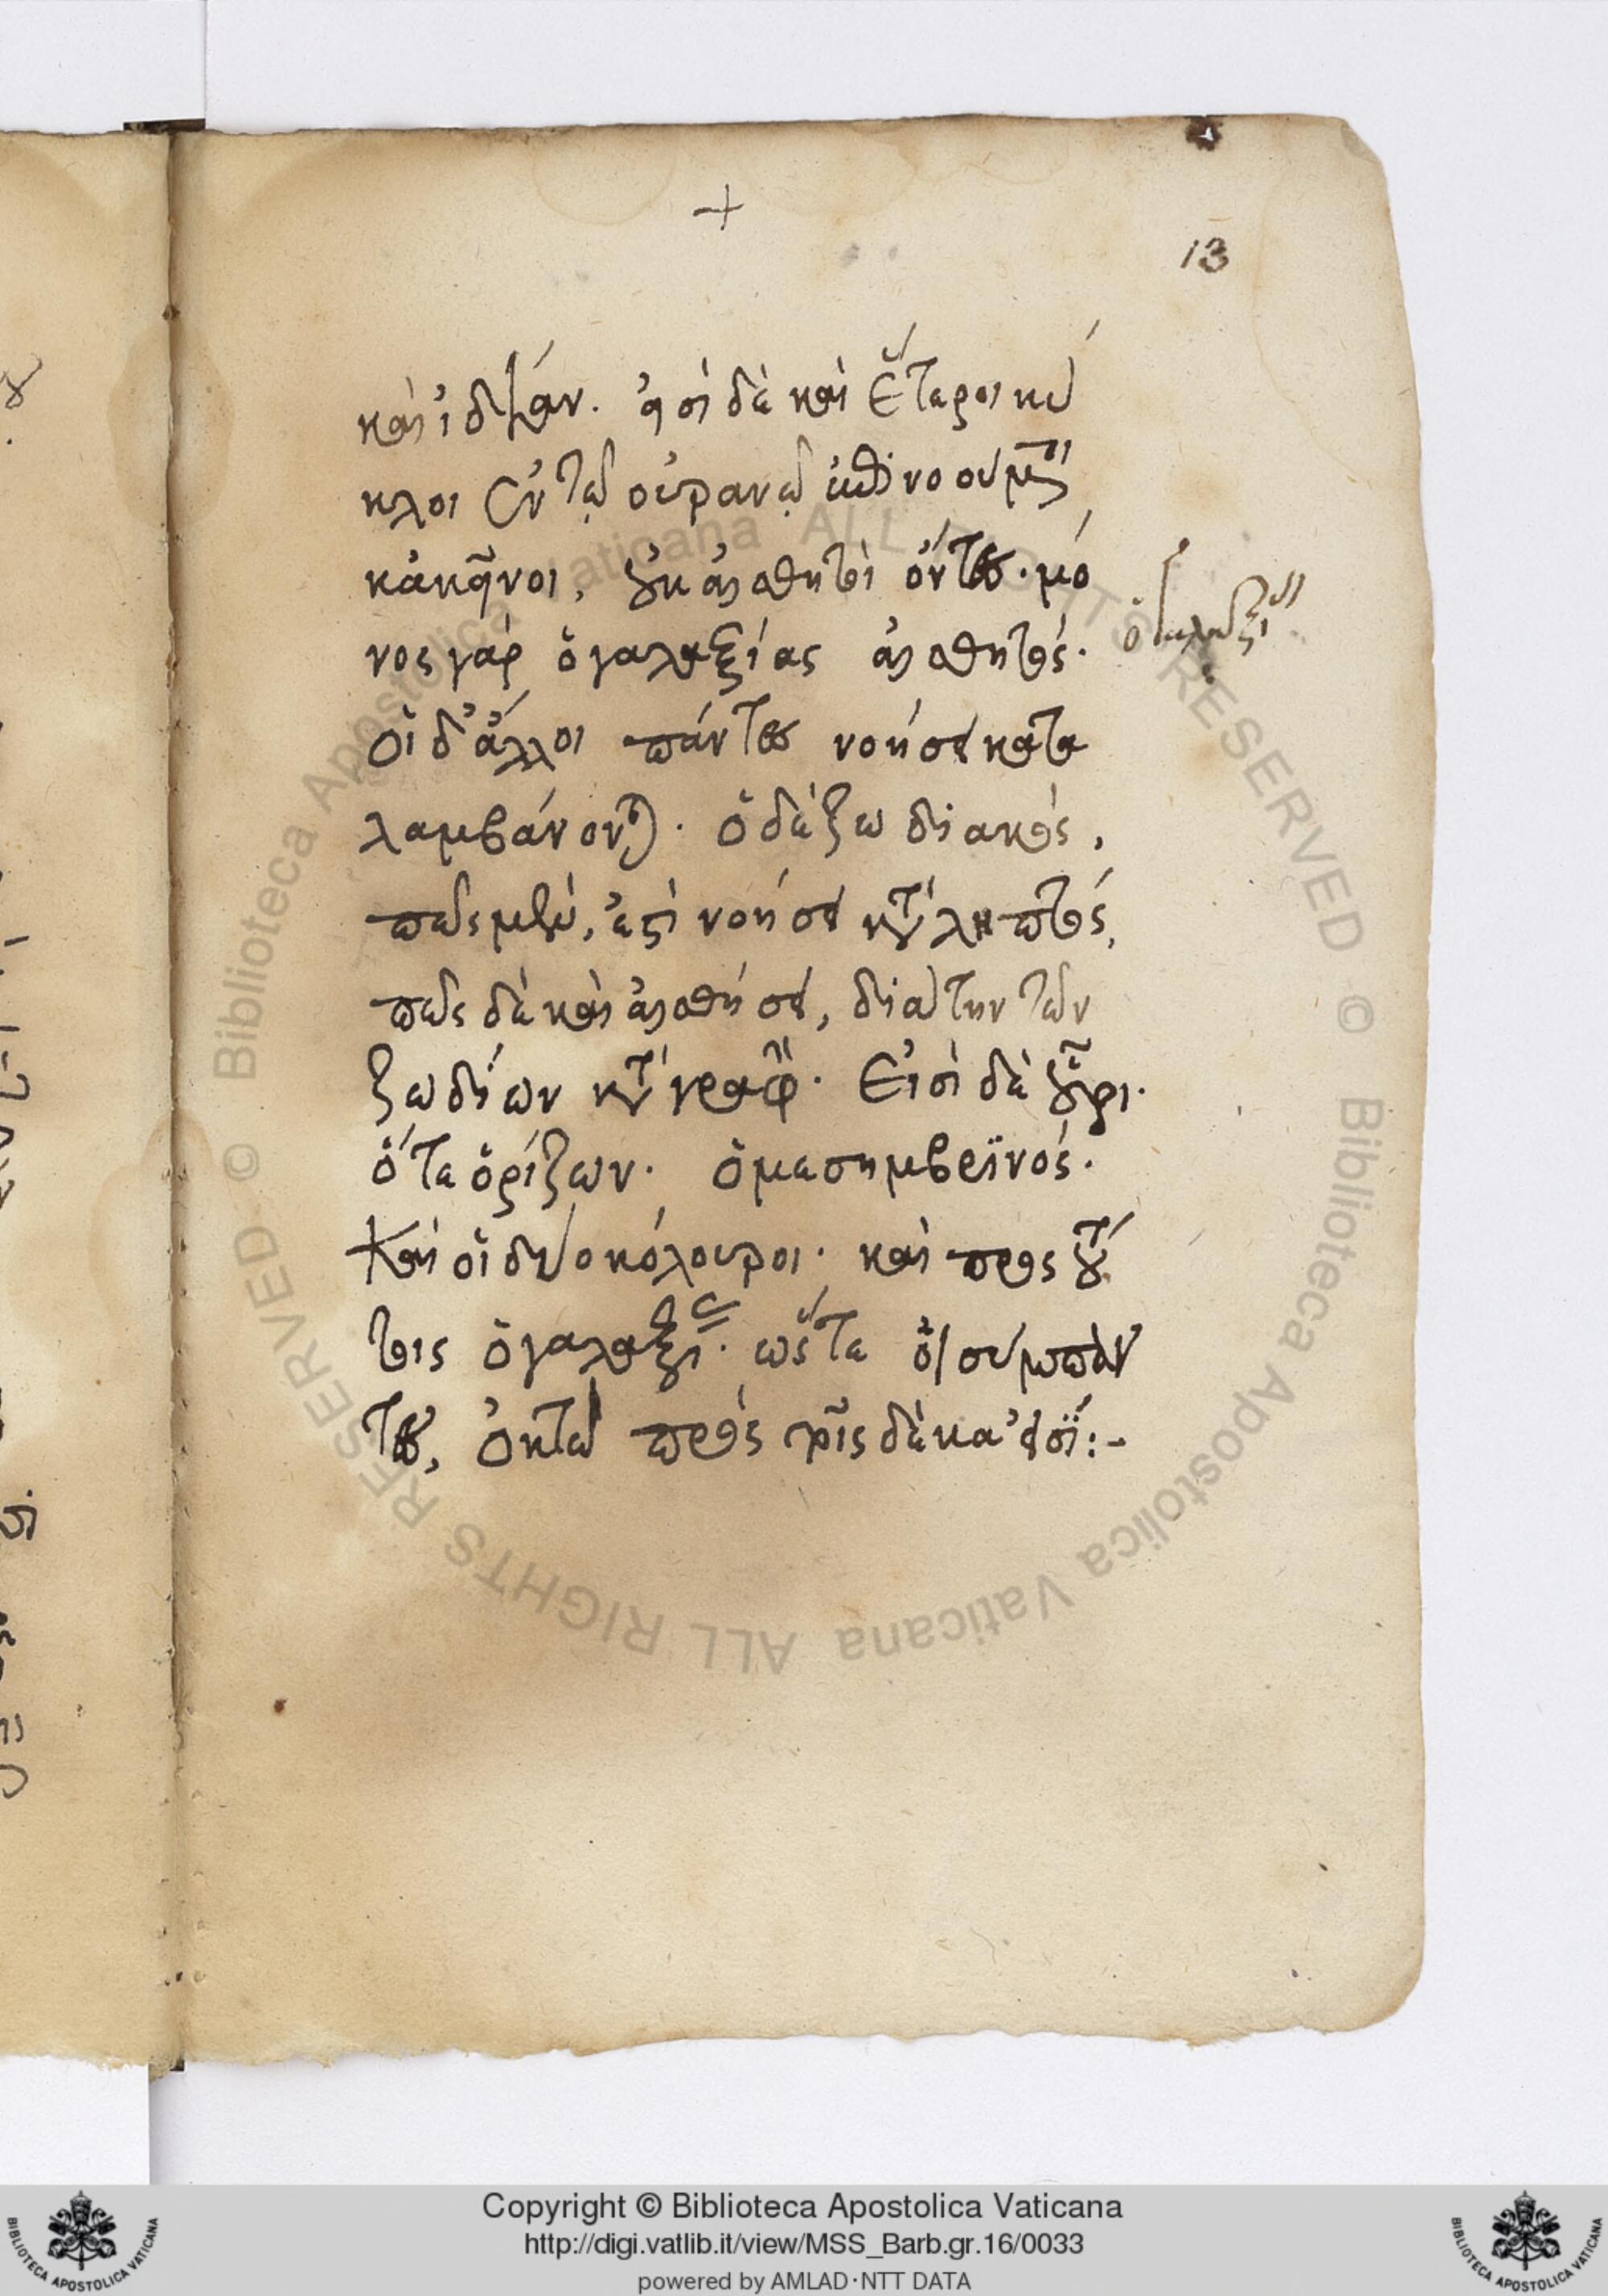 +
13
καὶ ἰδέαν. εἰσὶ δὲ καὶ ἕτεροι κύ
κλοι ἐν τῷ οὐρανῷ ἐπινοούμενοι
κἀκεῖνοι, οὐκ αἰσθητοὶ ὄντες. μό
νος γὰρ ὁ γαλαξίας αἰσθητός.
ὁ γαλαξίας
Οἱ δ' ἄλλοι πάντες νοήσει κατα
λαμβάνονται. ὁ δὲ ζωδιακός,
πῶς μὲν, ἐστὶ νοήσει κατάληπτός,
πῶς δὲ καὶ αἰσθήσει, διὰ τὴν τῶν
ζωδίων καταγραφήν. Εἰσὶ δὲ οὗτοι.
ὅ τε ὁρίζων. ὁ μεσημβρϊνός.
Καὶ οἱ δύο κόλουροι. καὶ πρὸς τού
τοις ὁ γαλαξίας. ὥστε οἱ σύμπαν
τες, ὀκτὼ πρὸς τρὶς δέκα εἰσΐ:-
Copyright © Biblioteca Apostolica Vaticana
http://digi.vatlib.it/view/MSS_Barb.gr.16/0033
powered by AMLAD·NTT DATA
Biblioteca Apostolica Vaticana ALL RIGHTS RESERVED ©
Biblioteca Apostolica Vaticana ALL RIGHTS RESERVED ©
BIBLIOTECA APOSTOLICA VATICANA
BIBLIOTECA APOSTOLICA VATICANA